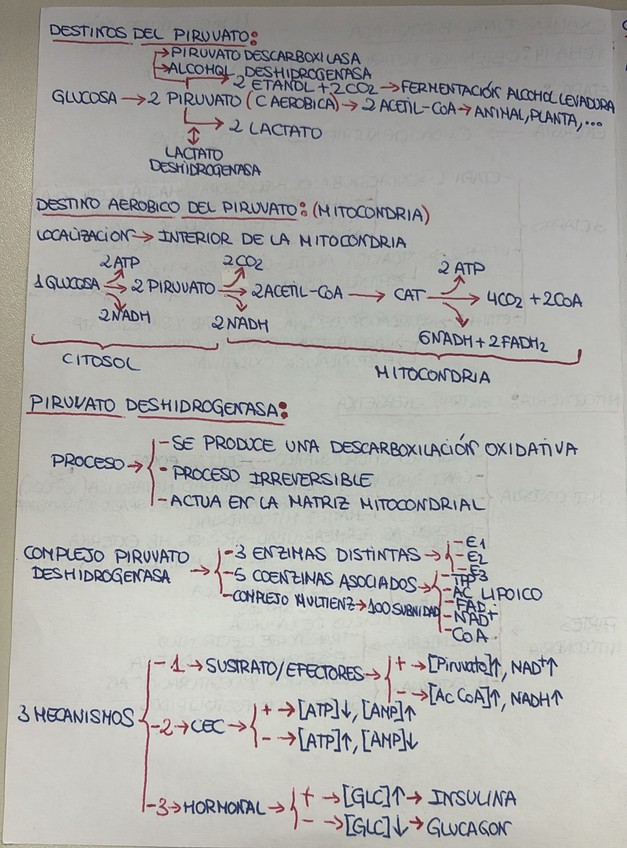 DESTINOS DEL PIRUVATO:
→ PIRUVATO DESCARBOXILASA
→ ALCOHOL DESHIDROGENASA
2 ETANOL + 2CO₂ → FERMENTACIÓN ALCOHOL LEVADURA
GLUCOSA → 2 PIRUVATO (C AEROBICA) → 2 ACETIL-COA → ANIMAL, PLANTA,...
→ 2 LACTATO
↕
LACTATO
DESHIDROGENASA
DESTINO AEROBICO DEL PIRUVATO: (MITOCONDRIA)
LOCALIZACION → INTERIOR DE LA MITOCONDRIA
2ATP 2CO₂ 2 ATP
1 GLUCOSA → 2 PIRUVATO → 2 ACETIL-COA → CAT → 4CO₂ + 2COA
2NADH 2 NADH 6NADH + 2FADH₂
CITOSOL MITOCONDRIA
PIRUVATO DESHIDROGENASA:
- SE PRODUCE UNA DESCARBOXILACIÓN OXIDATIVA
PROCESO → - PROCESO IRREVERSIBLE
- ACTUA EN LA MATRIZ MITOCONDRIAL
COMPLEJO PIRUVATO
DESHIDROGENASA →
- 3 ENZIMAS DISTINTAS →
- E1
- E2
- E3
- 5 COENZIMAS ASOCIADOS →
- TPP
- AC LIPOICO
- FAD
- NAD+
- COA
- COMPLEJO MULTIENZ → 100 SUBNIDAD
3 MECANISMOS
- 1 → SUSTRATO/EFECTORES →
+ → [Piruvato]↑, NAD+↑
- → [AC COA]↑, NADH↑
- 2 → CEC →
+ → [ATP]↓, [AMP]↑
- → [ATP]↑, [AMP]↓
- 3 → HORMONAL →
+ → [GLC]↑ → INSULINA
- → [GLC]↓ → GLUCAGON